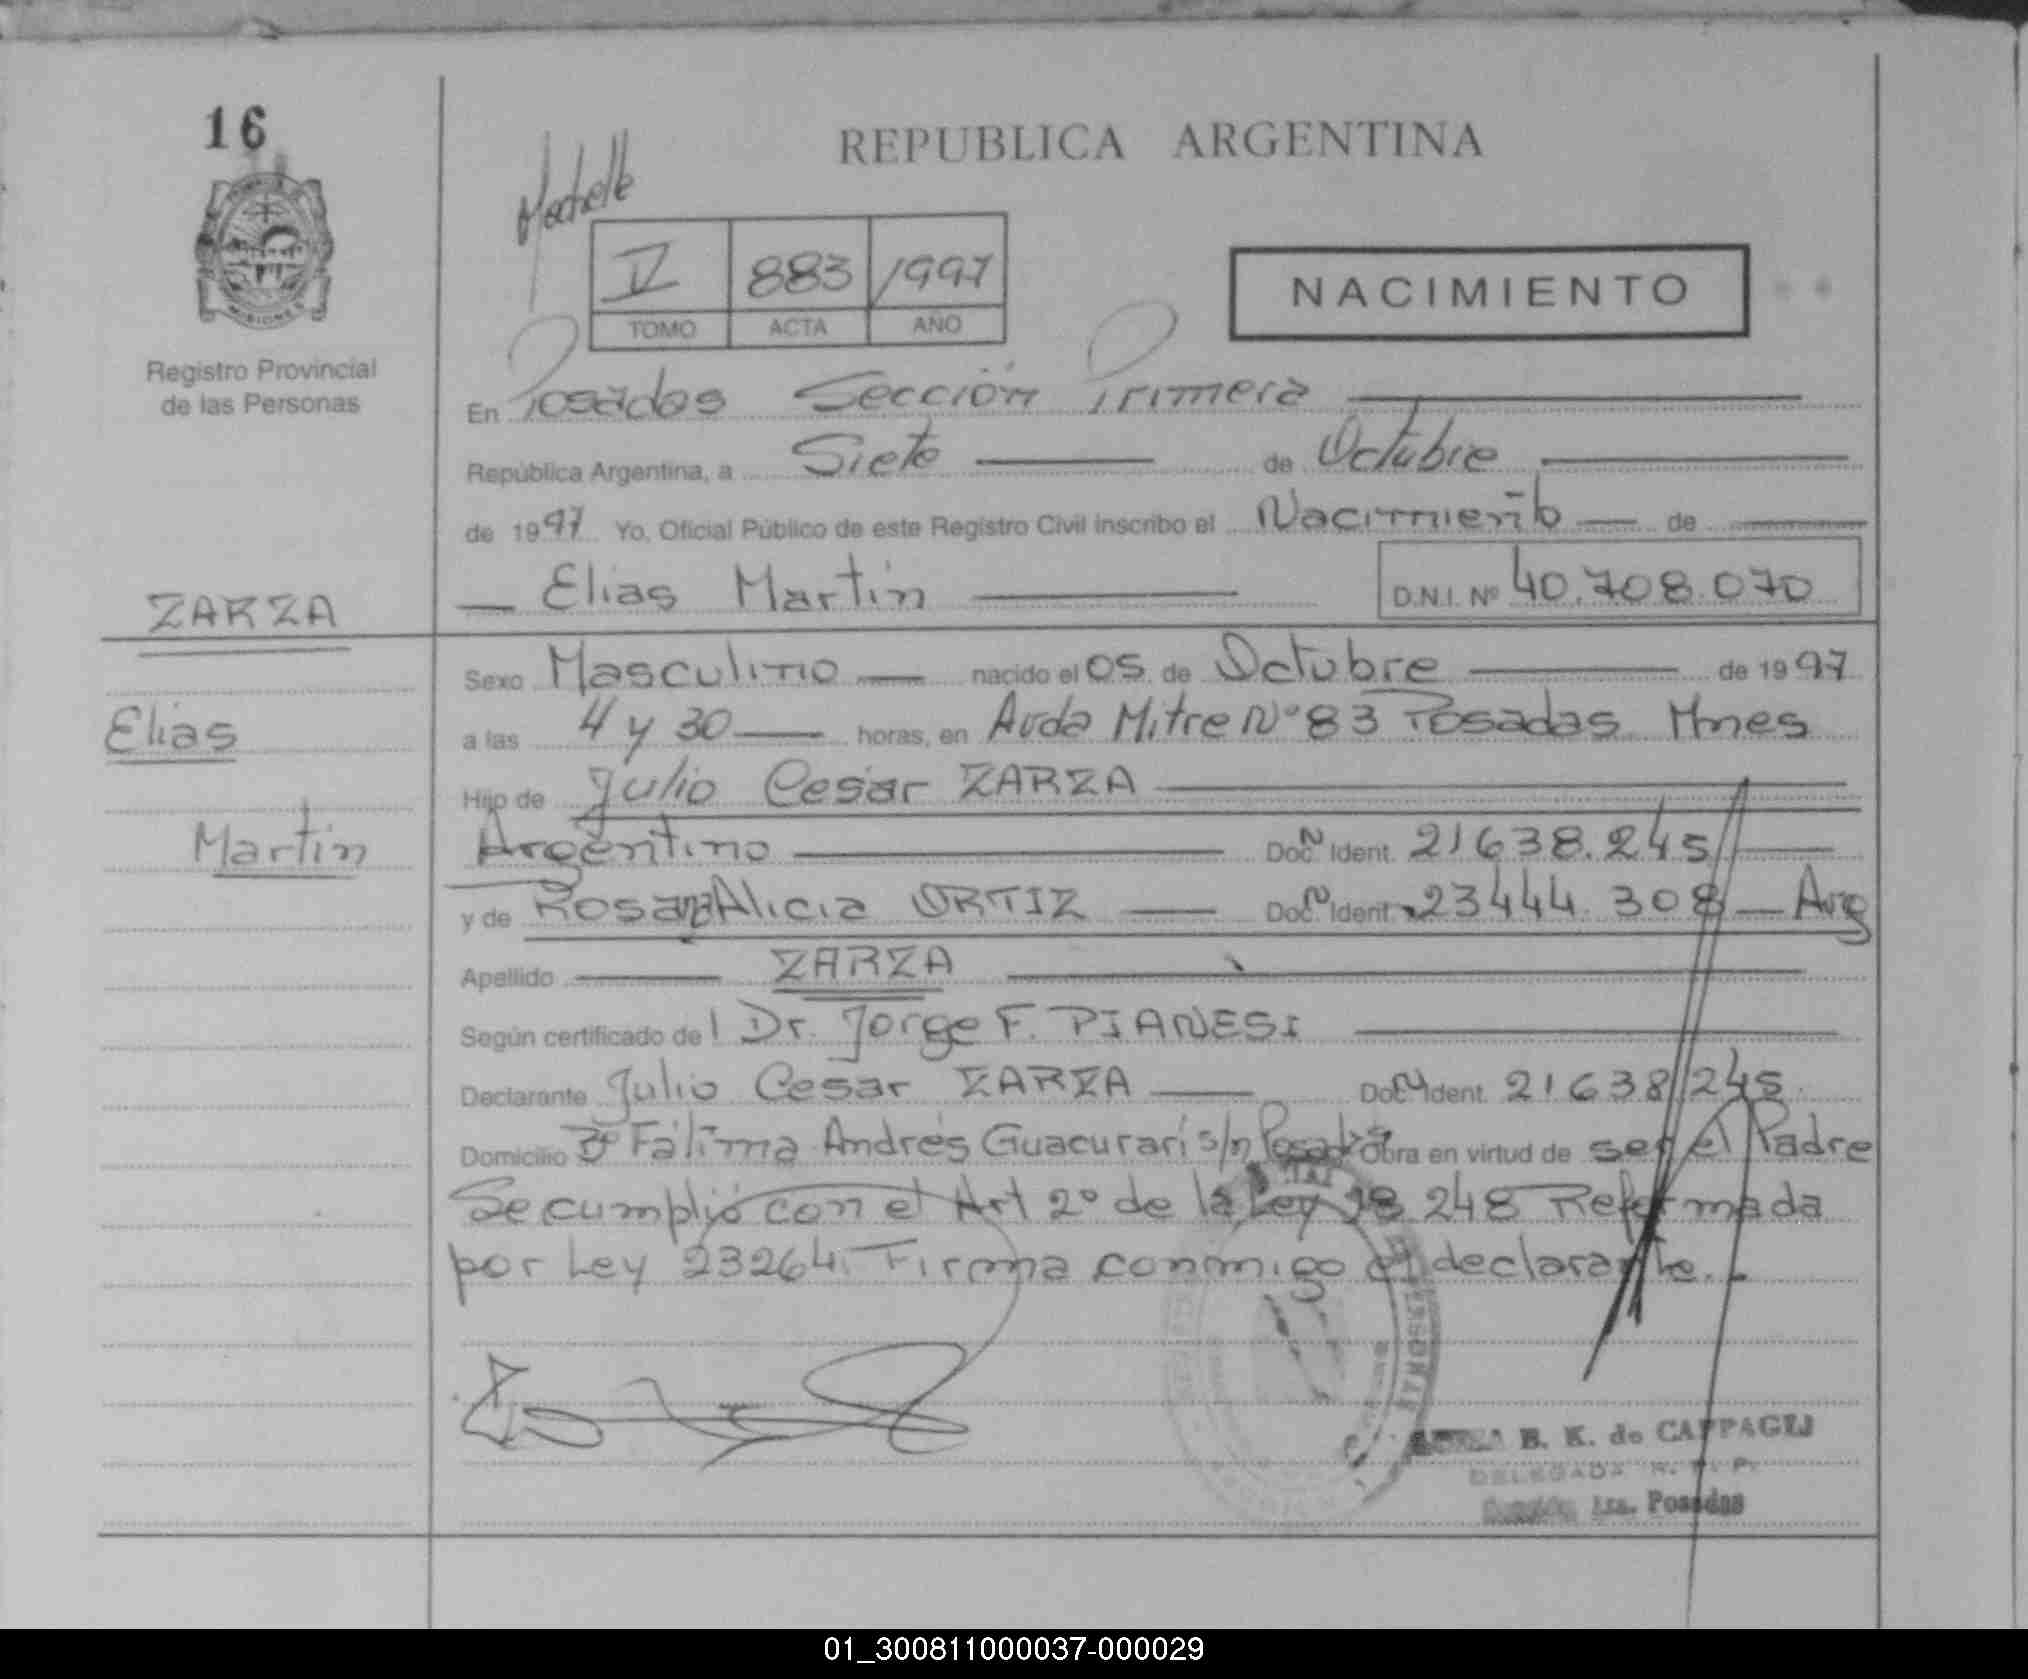 16
REPUBLICA ARGENTINA
V 883 1997
TOMO ACTA AÑO
NACIMIENTO
MISIONES
Registro Provincial
de las Personas
En Posadas Sección Primera
República Argentina, a Siete de Octubre
de 1997 Yo, Oficial Público de este Registro Civil inscribo el Nacimiento de
Elias Martin D.N.I. Nº 40.708.070
ZARZA
Elias
Martin
Sexo Masculino nacido el 05 de Octubre de 1997
a las 4 y 30 horas, en Avda Mitre Nº 83 Posadas Mnes
Hijo de Julio Cesar ZARZA
Argentino Doc. N Ident. 21638.245
y de Rosa Alicia ORTIZ Doc. N Ident. 23444.308 Arg
Apellido ZARZA
Según certificado de l Dr. Jorge F. PIANESI
Declarante Julio Cesar ZARZA Doc. N Ident. 21638245
Domicilio Bº Fátima Andrés Guacurarí s/n Posadas Obra en virtud de ser el Padre
Se cumplió con el Art 2º de la Ley 18248 Reformada
por Ley 23264. Firma conmigo el declarante.
B. K. de CAPPAGLI
DELEGADA R. P. P.
Sección 1ra. Posadas
01_300811000037-000029